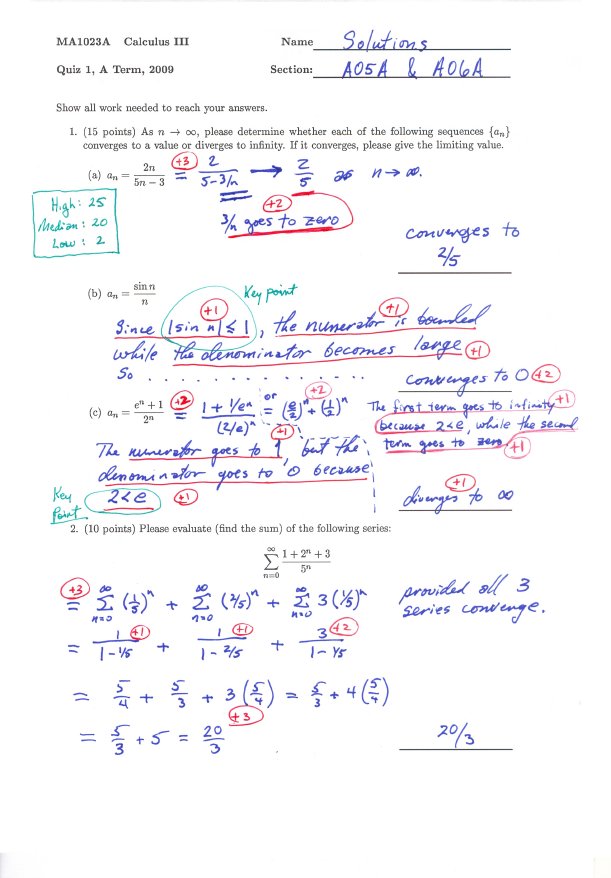 MA1023A Calculus III Name Solutions
Quiz 1, A Term, 2009 Section: A05A & A06A
Show all work needed to reach your answers.
1. (15 points) As n → ∞, please determine whether each of the following sequences {aₙ}
converges to a value or diverges to infinity. If it converges, please give the limiting value.
(a) aₙ = 2n/(5n − 3) = +3 2/(5-3/n) → 2/5 as n → ∞.
+2
3/n goes to zero
High: 25
Median: 20
Low: 2
converges to
2/5
(b) aₙ = sin n/n
Key point
+1 +1
Since |sin n| ≤ 1, the numerator is bounded
while the denominator becomes large +1
So . . . . . . . . . . converges to 0 +2
(c) aₙ = (eⁿ + 1)/2ⁿ +2 = (1 + 1/eⁿ)/(2/e)ⁿ or = (e/2)ⁿ + (1/2)ⁿ +2
The first term goes to infinity +1
because 2<e, while the second
term goes to zero +1
+1
The numerator goes to 1, but the
denominator goes to 0 because
Key
Point
2<e +1
+1
diverges to ∞
2. (10 points) Please evaluate (find the sum) of the following series:
∞
∑ (1 + 2ⁿ + 3)/5ⁿ
n=0
+3
= ∞∑n=0 (1/5)ⁿ + ∞∑n=0 (2/5)ⁿ + ∞∑n=0 3(1/5)ⁿ
provided all 3
series converge.
= 1/(1-1/5) +1 + 1/(1-2/5) +1 + 3/(1-1/5) +2
= 5/4 + 5/3 + 3(5/4) = 5/3 + 4(5/4)
+3
= 5/3 + 5 = 20/3
20/3